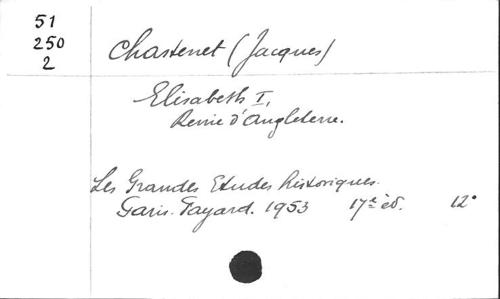 51
250
2
Chastenet (Jacques)
Elisabeth I,
Reine d'Angleterre.
Les Grandes Etudes historiques.
Paris. Fayard. 1953 17e éd. 12°